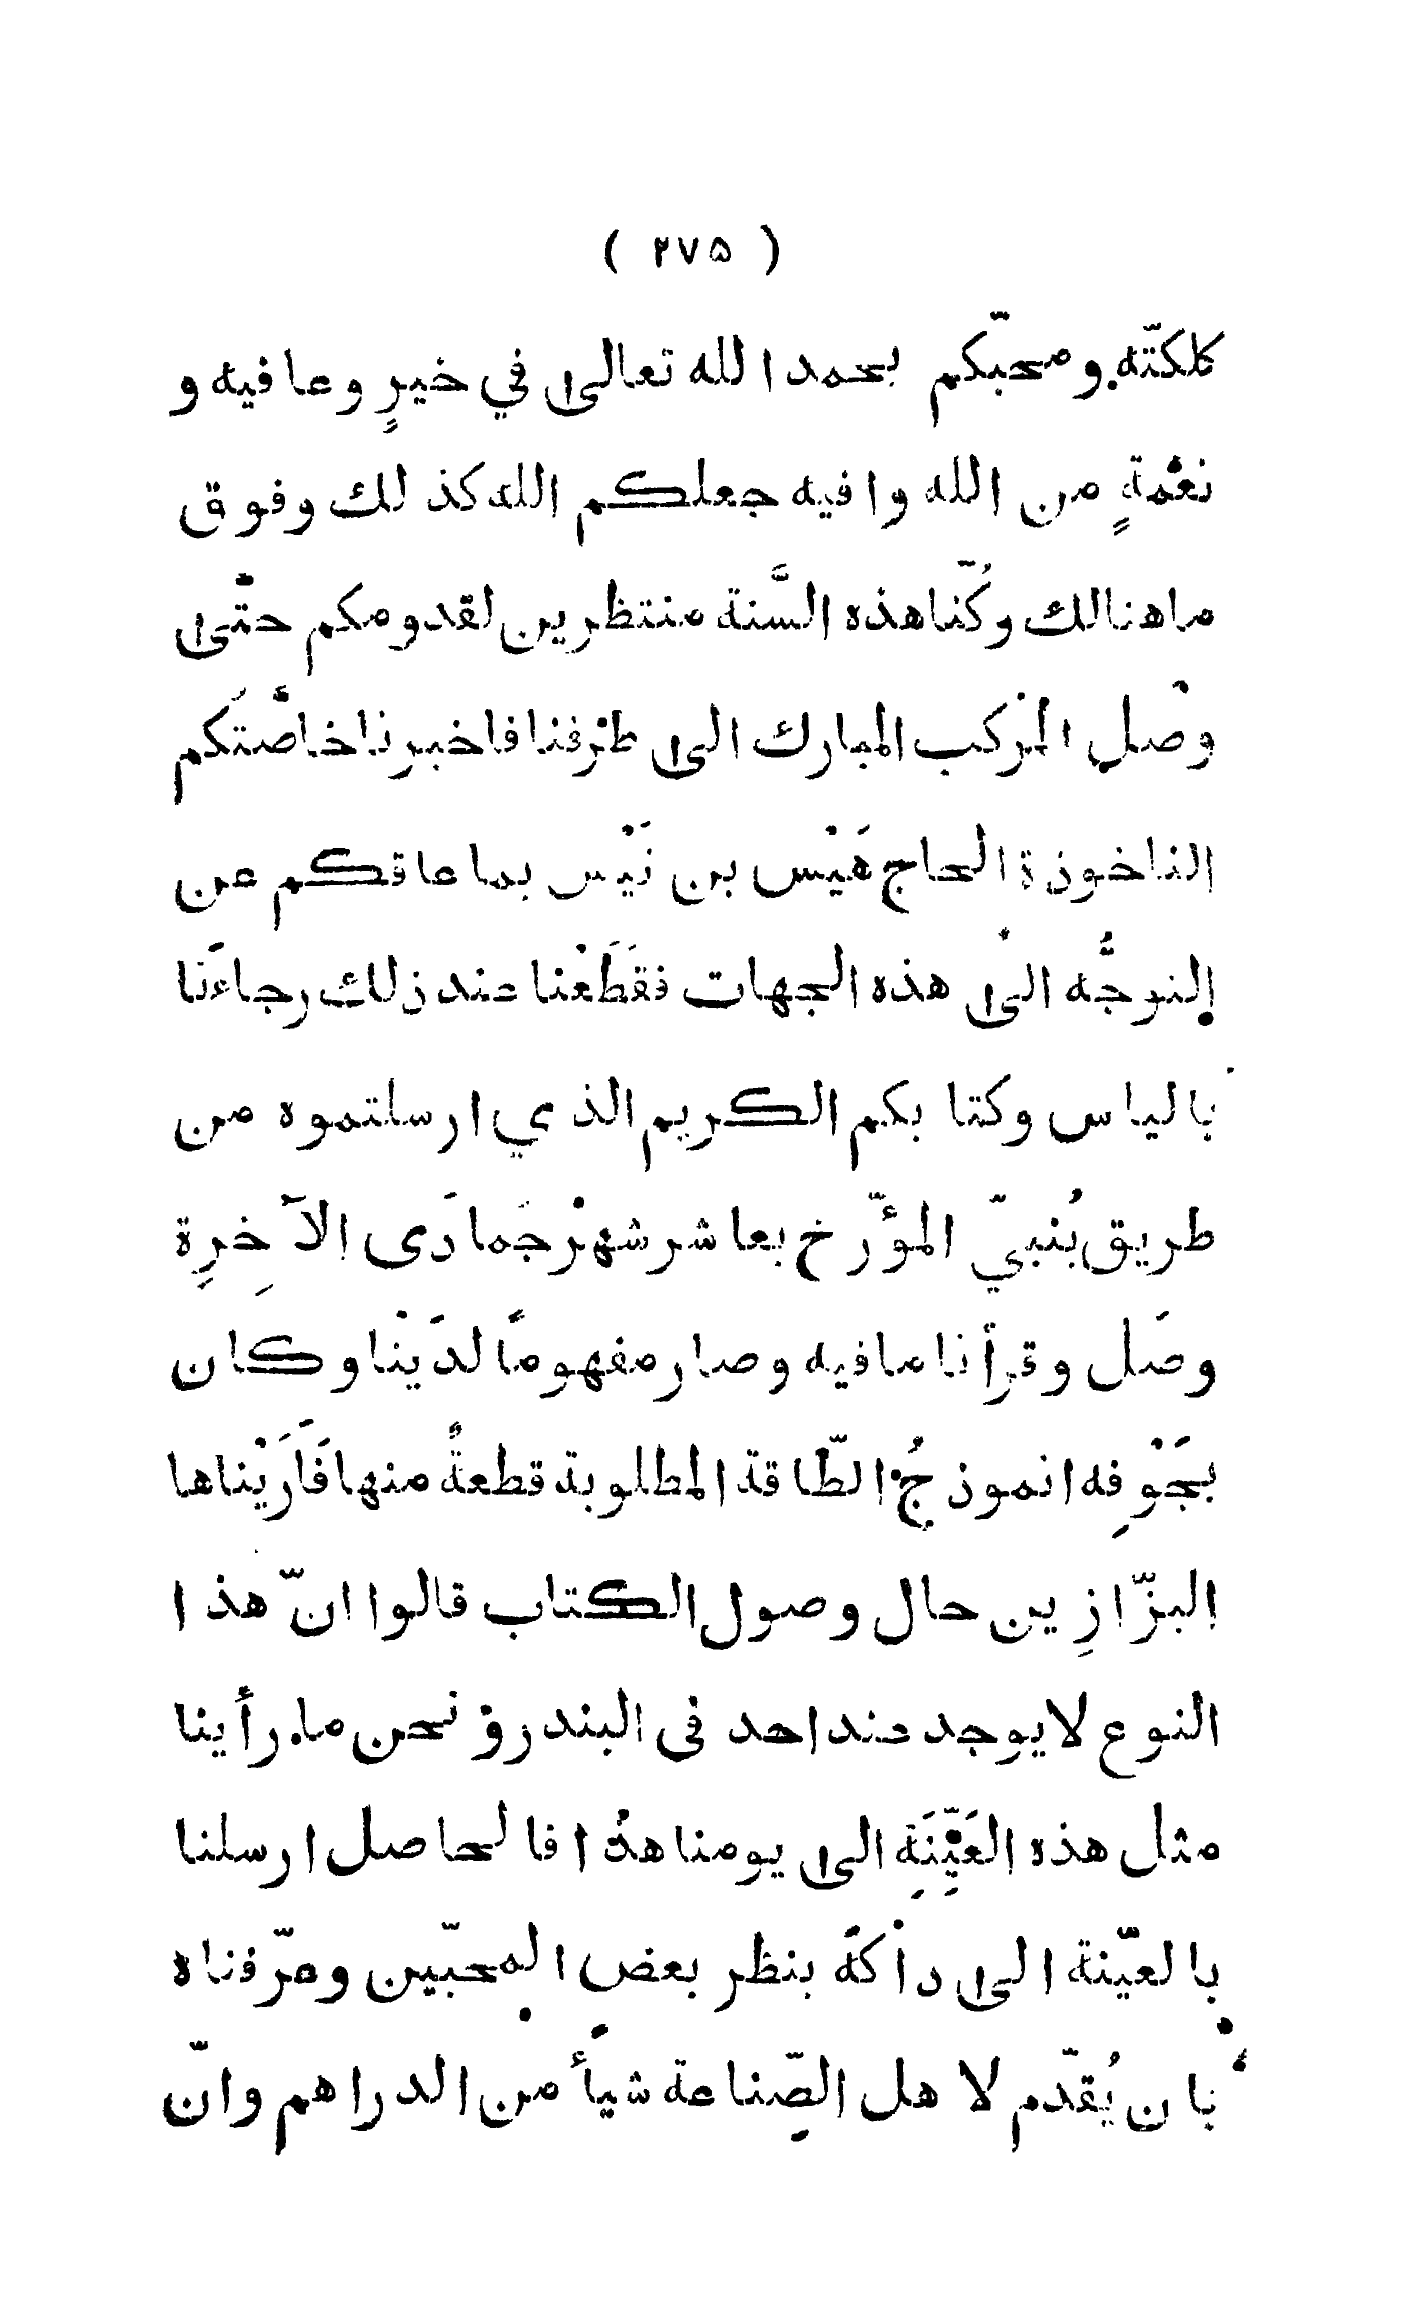 ( ٢٧٥ )
كلكتّه ومحبّكم بحمد الله تعالى في خيرٍ وعافيه و
نعْمةٍ من الله وافيه جعلكم الله كذلك وفوق
ما هنالك وكُنّا هذه السَّنة منتظرين لقدومكم حتّى
وصْل المْركب المبارك الى طرْفنا فاخبرنا خاصَّتَكم
الناخوذة الحاج هَيْس بن نَيْس بما عاقكم عن
التوجُّه الىْ هذه الجهات فقَطَعْنا عند ذلك رجاءَنا
بالياس وكتابكم الكريم الذي ارسلتموه من
طريق بُنبيّ المؤرّخ بعاشر شهْر جَمادَى الآخِرِة
وصَل وقرأنا ما فيه وصار مفهومًا لدَيْنا وكان
بجَوْفِه انموذجُ الطّاقة المطلوبة قطعةٌ منها فَاَرَيْناها
البزّازِين حال وصول الكتاب قالوا انّ هذا
النوع لا يوجد عند احد في البندر ونحن ما رأينا
مثل هذه العَيِّنَةِ الى يومنا هذا فالحاصل ارسلنا
بالعيّنة الى داْكَة بنظر بعض المحبّين وعرّفناه
بأن يُقدّم لاهل الصِّناعة شيأً من الدراهم وانّ